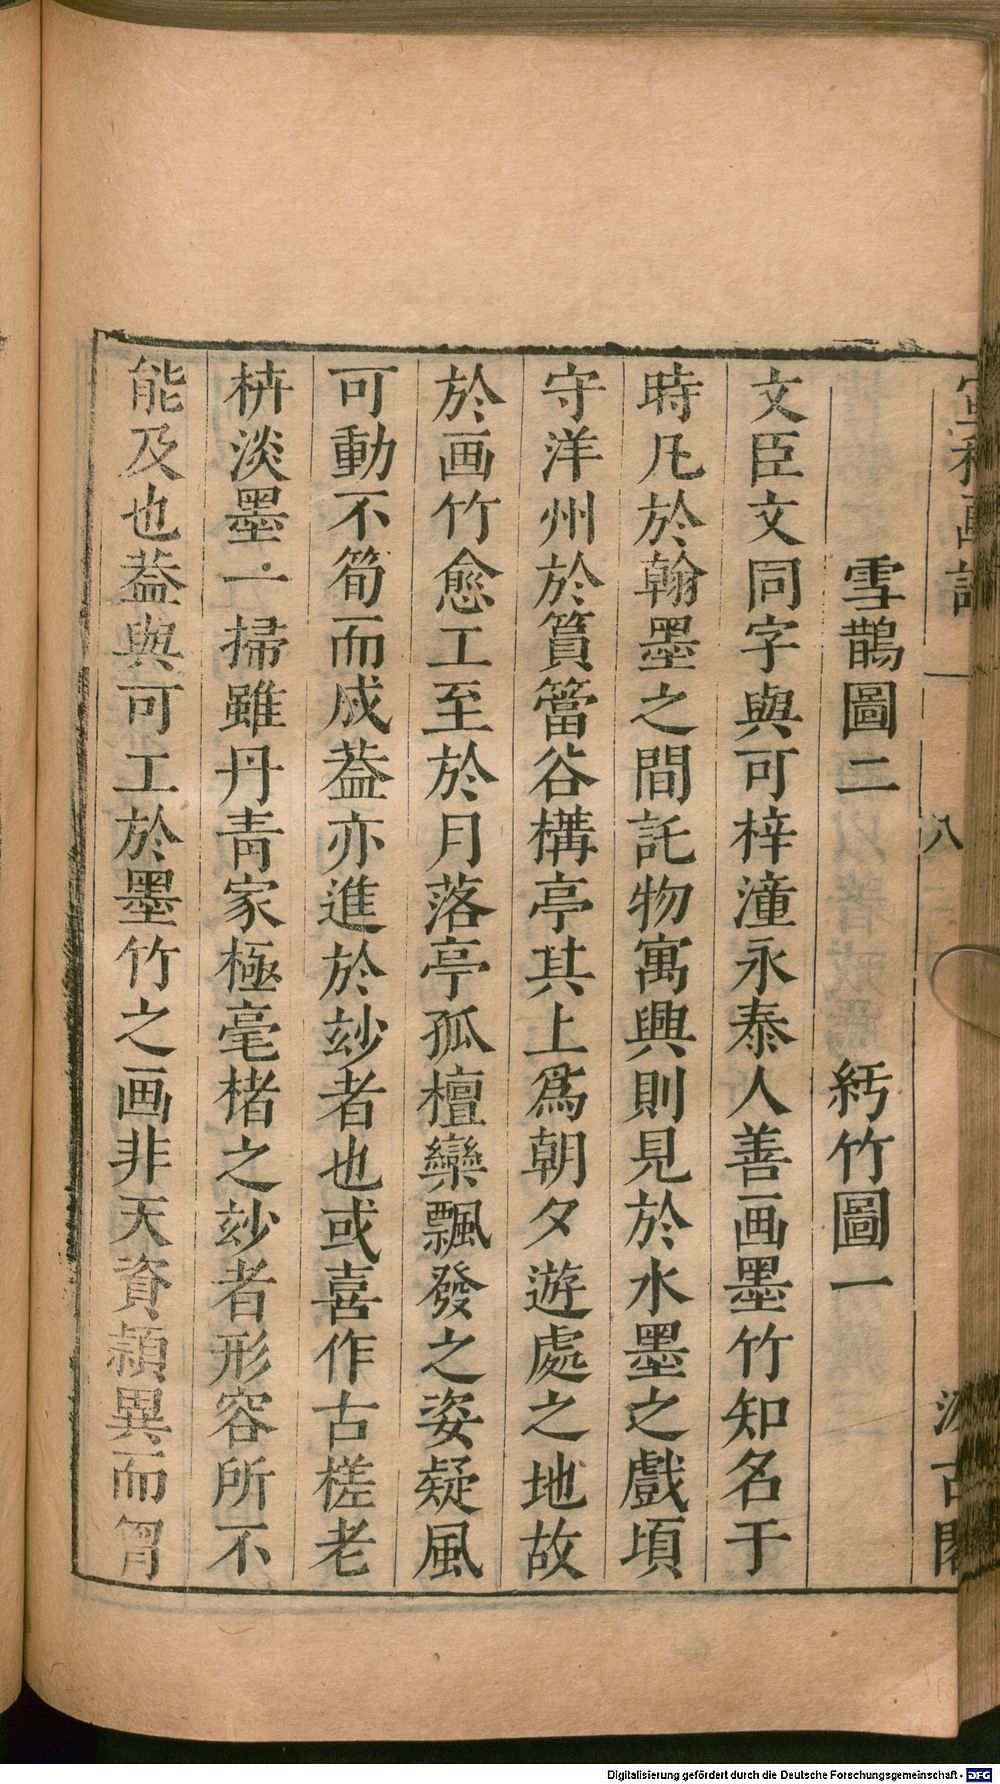 宣和画譜 八 汲古閣
雪鵲圖二 紆竹圖一
文臣文同字與可梓潼永泰人善画墨竹知名于
時凡於翰墨之間託物寓興則見於水墨之戲頃
守洋州於篔簹谷構亭其上為朝夕遊處之地故
於画竹愈工至於月落亭孤檀欒飄發之姿疑風
可動不筍而成葢亦進於玅者也或喜作古槎老
枿淡墨一掃雖丹青家極毫楮之玅者形容所不
能及也葢與可工於墨竹之画非天資頴異而胷
Digitalisierung gefördert durch die Deutsche Forschungsgemeinschaft - DFG